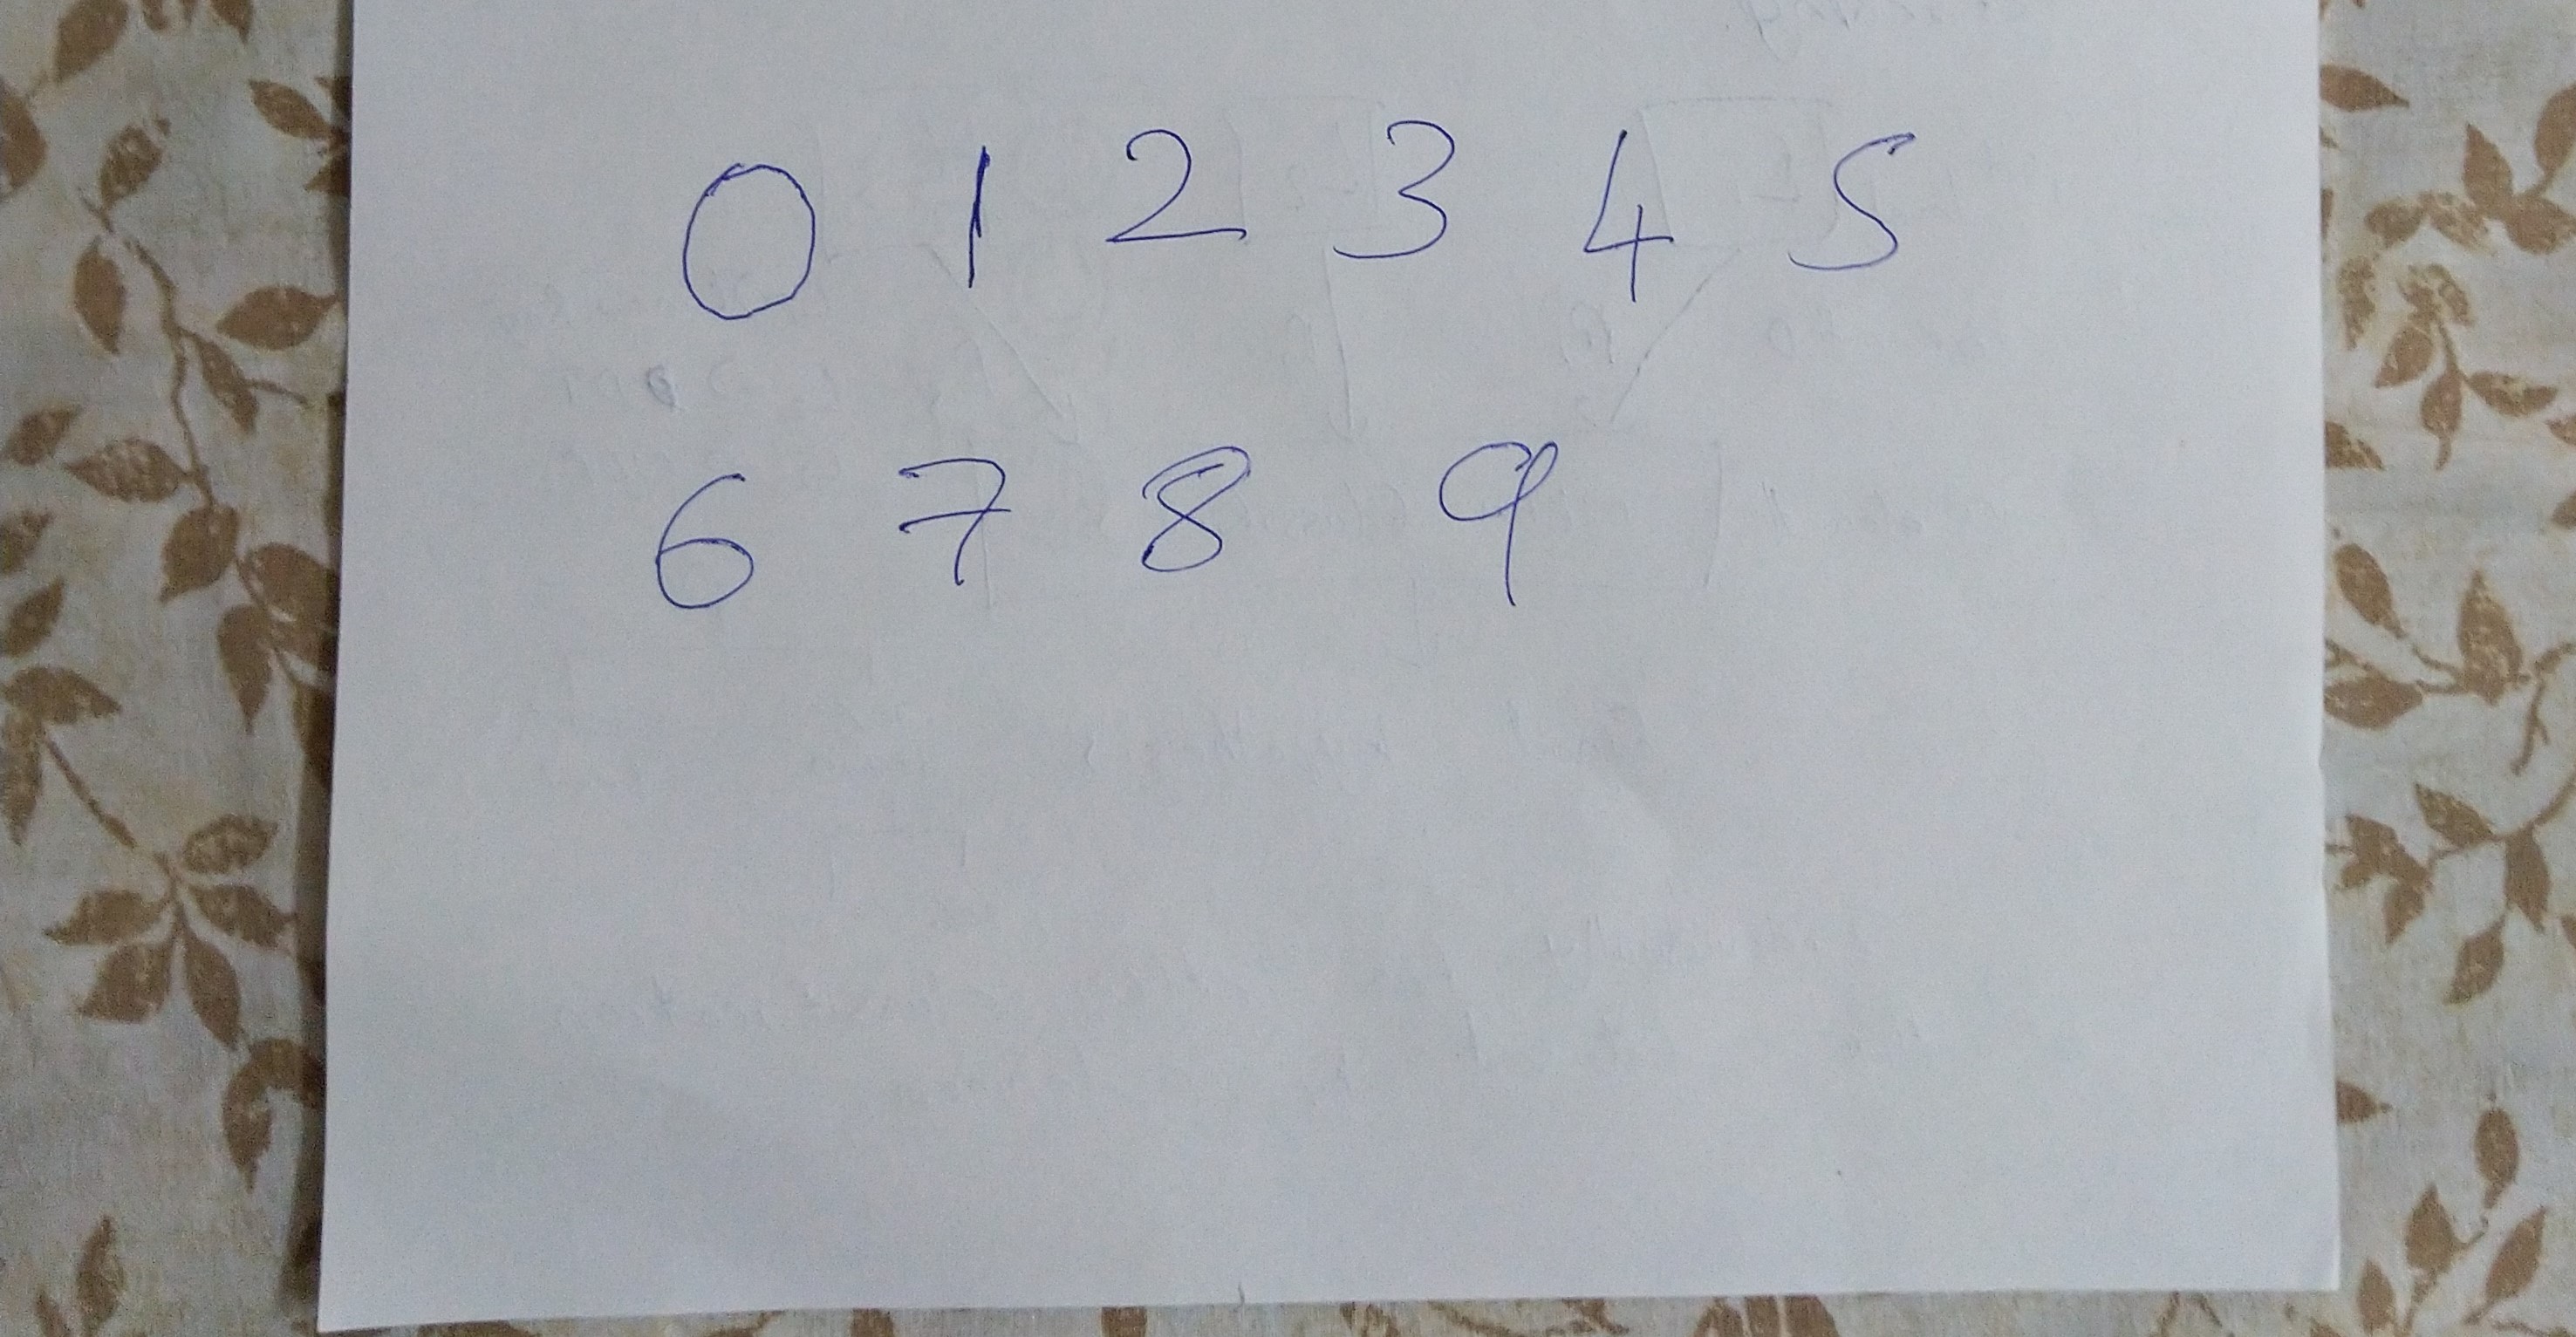 0 1 2 3 4 5
6 7 8 9